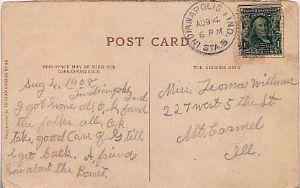 POST CARD
INDIANAPOLIS, IND.
AUG 4
6 PM
STA. 8
THIS SPACE MAY BE USED FOR
CORRESPONDENCE
THE ADDRESS ONLY
Aug 4, 1908
Indianapolis Ind
I got home all O.K. found
the folks all O.K.
take good care of till
i get back. A friend
how about the Bonnet.
Miss Leoma Willman
227 west 5 th St
Mt. Carmel
Ill.